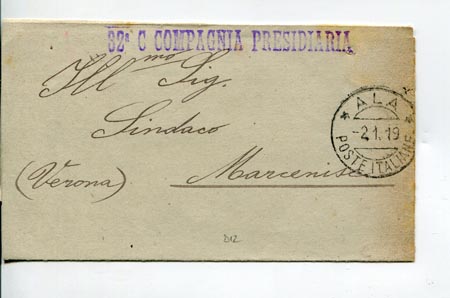 82ª C COMPAGNIA PRESIDIARIA
Ill mo Sig.
Sindaco
(Verona) Marcenise
* ALA *
-2.1.19
POSTE ITALIANE
D12